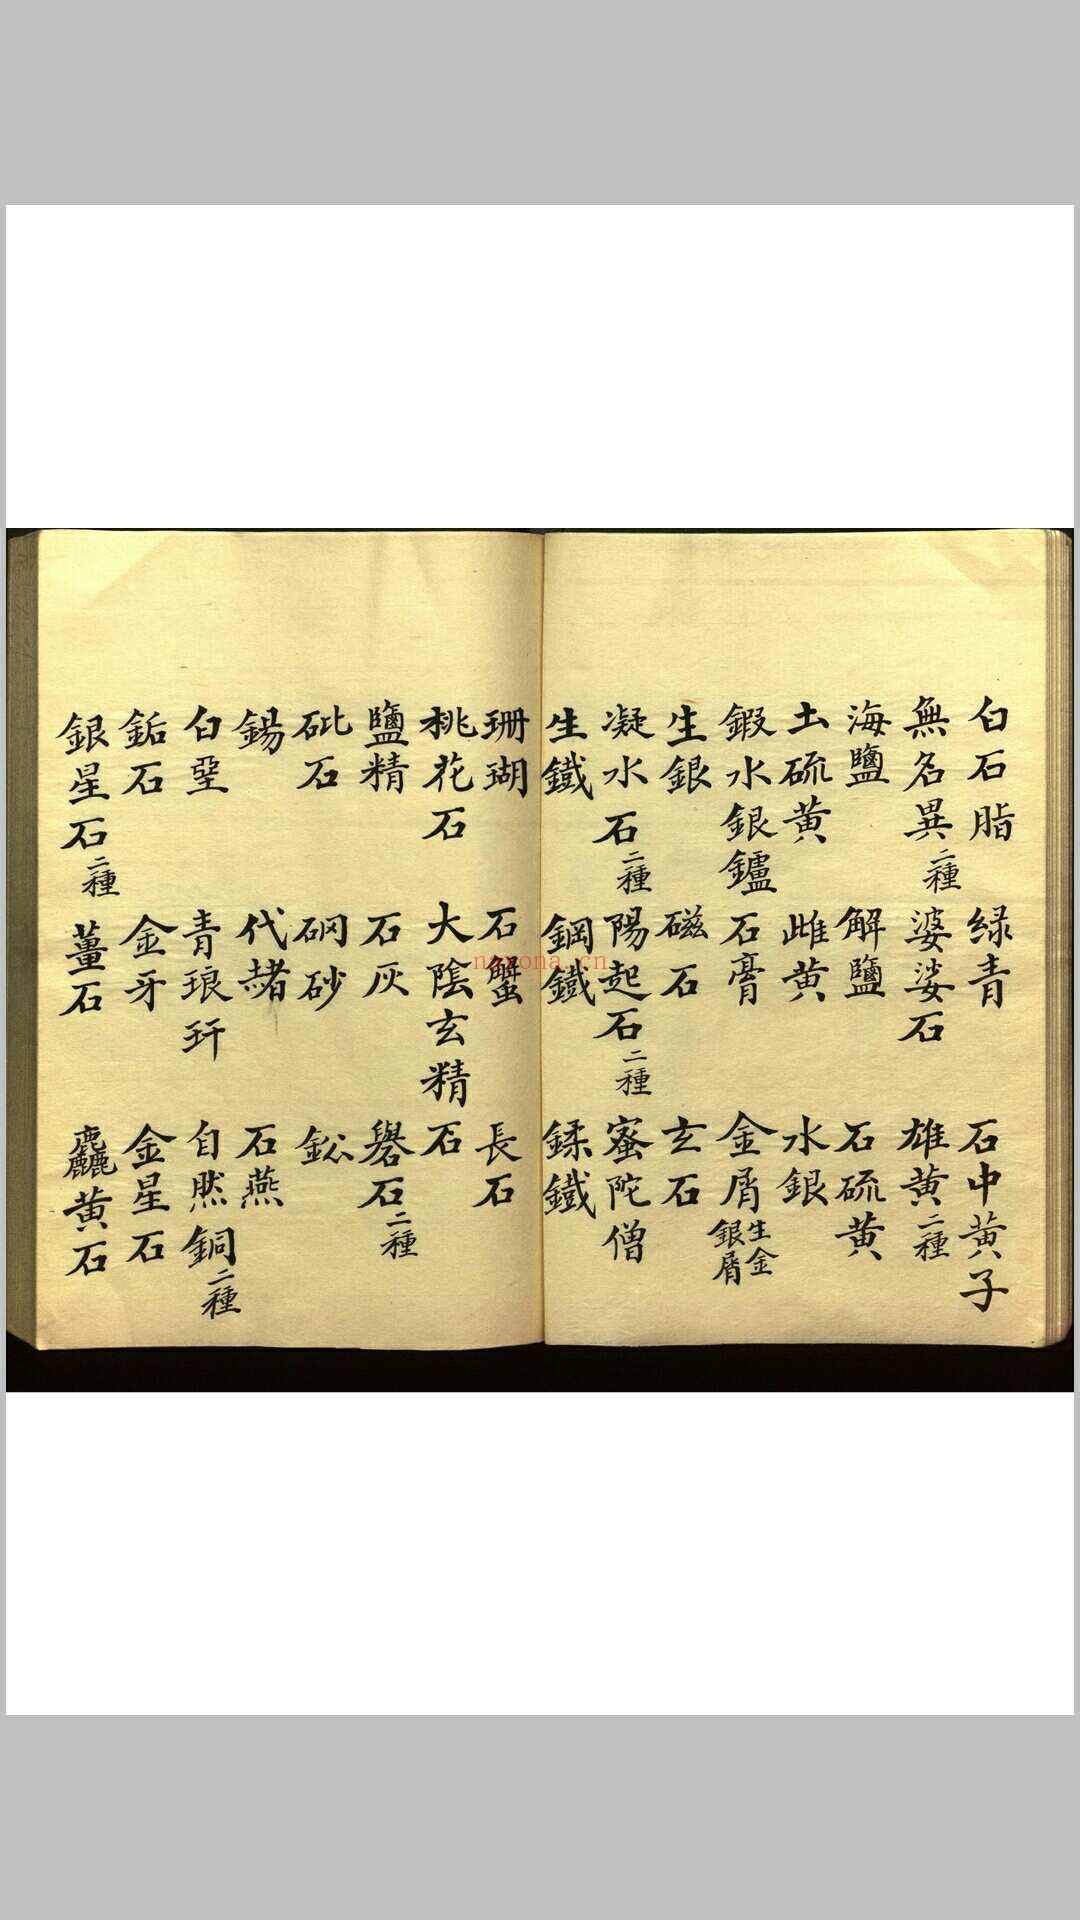 白石脂 緑青 石中黄子
無名異二種 婆娑石 雄黄二種
海鹽 解鹽 石硫黄
土硫黄 雌黄 水銀
鍜水銀鑪 石膏 金屑生金銀屑
生銀 磁石 玄石
凝水石二種 陽起石二種 蜜陀僧
生鐵 鋼鐵 鍒鐵
珊瑚 石蟹 長石
桃花石 大陰玄精石
鹽精 石灰 礜石二種
砒石 硇砂 鈆
錫 代赭 石燕
白堊 青琅玕 自然銅二種
鉐石 金牙 金星石
銀星石二種 薑石 麤黄石
nayona.cn